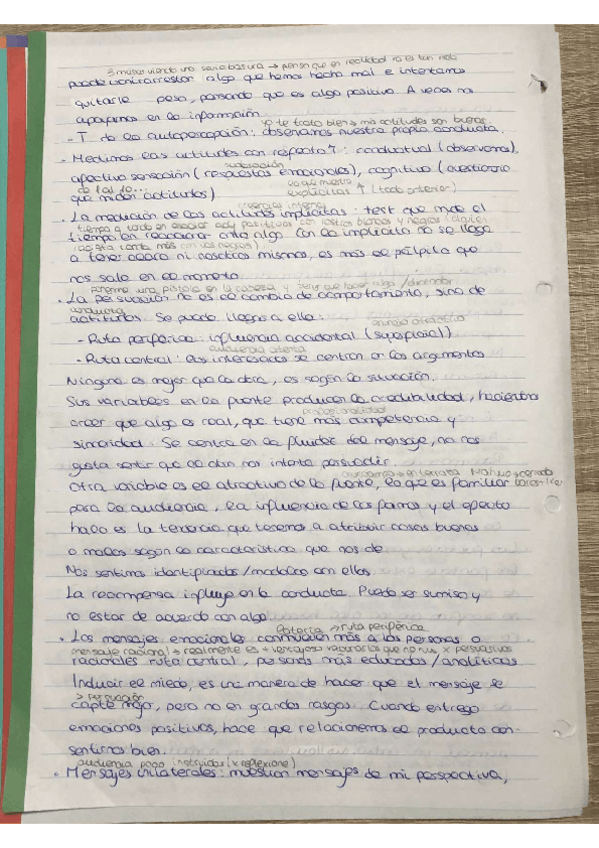 3 musas viendo una serie basura → pensar que en realidad no es tan malo
puede contrarrestar algo que hemos hecho mal e intentamos
quitarle peso, pensando que es algo positivo. A veces nos
apoyamos en la información.
yo te trato bien → mis actitudes son buenas
- T de la autopercepción: observamos nuestra propia conducta.
- Medimos las actitudes con respecto a: conductual (observamos),
valoración
afectivo sensación (respuestas emocionales), cognitivo (cuestionario
de 1 al 10... lo que muestro
que miden actitudes) explícitas ↑ (todo anterior)
creencias internas
· La medición de las actitudes implícitas: test que mide el
tiempo a tardo en asociar adj positivos con rostros blancos y negros
tiempo en reaccionar ante algo. Con la implícita no se llega
más con los negros)
a tener acceso ni nosotros mismos, es más el pálpito que
nos sale en el momento.
ponerme una pistola en la cabeza y tener que hacer algo
· La persuasión no es el cambio de comportamiento, sino de
conducta
actitudes. Se puede llegar a ella:
- Ruta periférica: influencia accidental (superficial)
audiencia atenta
- Ruta central: los interesados se centran en los argumentos
Ninguna es mejor que la otra, es según la situación.
Sus variables en la fuente producen la credibilidad, haciendo
profesionalidad
creer que algo es real, que tiene más competencia y
sinceridad. Se centra en la fluidez del mensaje, no nos
gusta sentir que el otro nos intenta persuadir.
Otra variable es el atractivo de la fuente, lo que es familiar
para la audiencia, la influencia de los famosos y el efecto
halo es la tendencia que tenemos a atribuir cosas buenas
o malas según la característica que nos de
Nos sentimos identificados/modelado con ellos
La recompensa influye en la conducta. Puedo ser sumiso y
no estar de acuerdo con algo
→ ruta periférica
· Los mensajes emocionales conmueven más a las personas o
mensaje racional → realmente es + ventajoso
racionales ruta central, personas más educadas/analíticas
Inducir el miedo, es una manera de hacer que el mensaje se
> persuasión
capte mejor, pero no en grandes rasgos. Cuando entrego
emociones positivas, hace que relacionemos el producto con
sentirnos bien.
audiencia poco instruidos (x reflexione)
· Mensajes unilaterales: muestran mensajes de mi perspectiva,